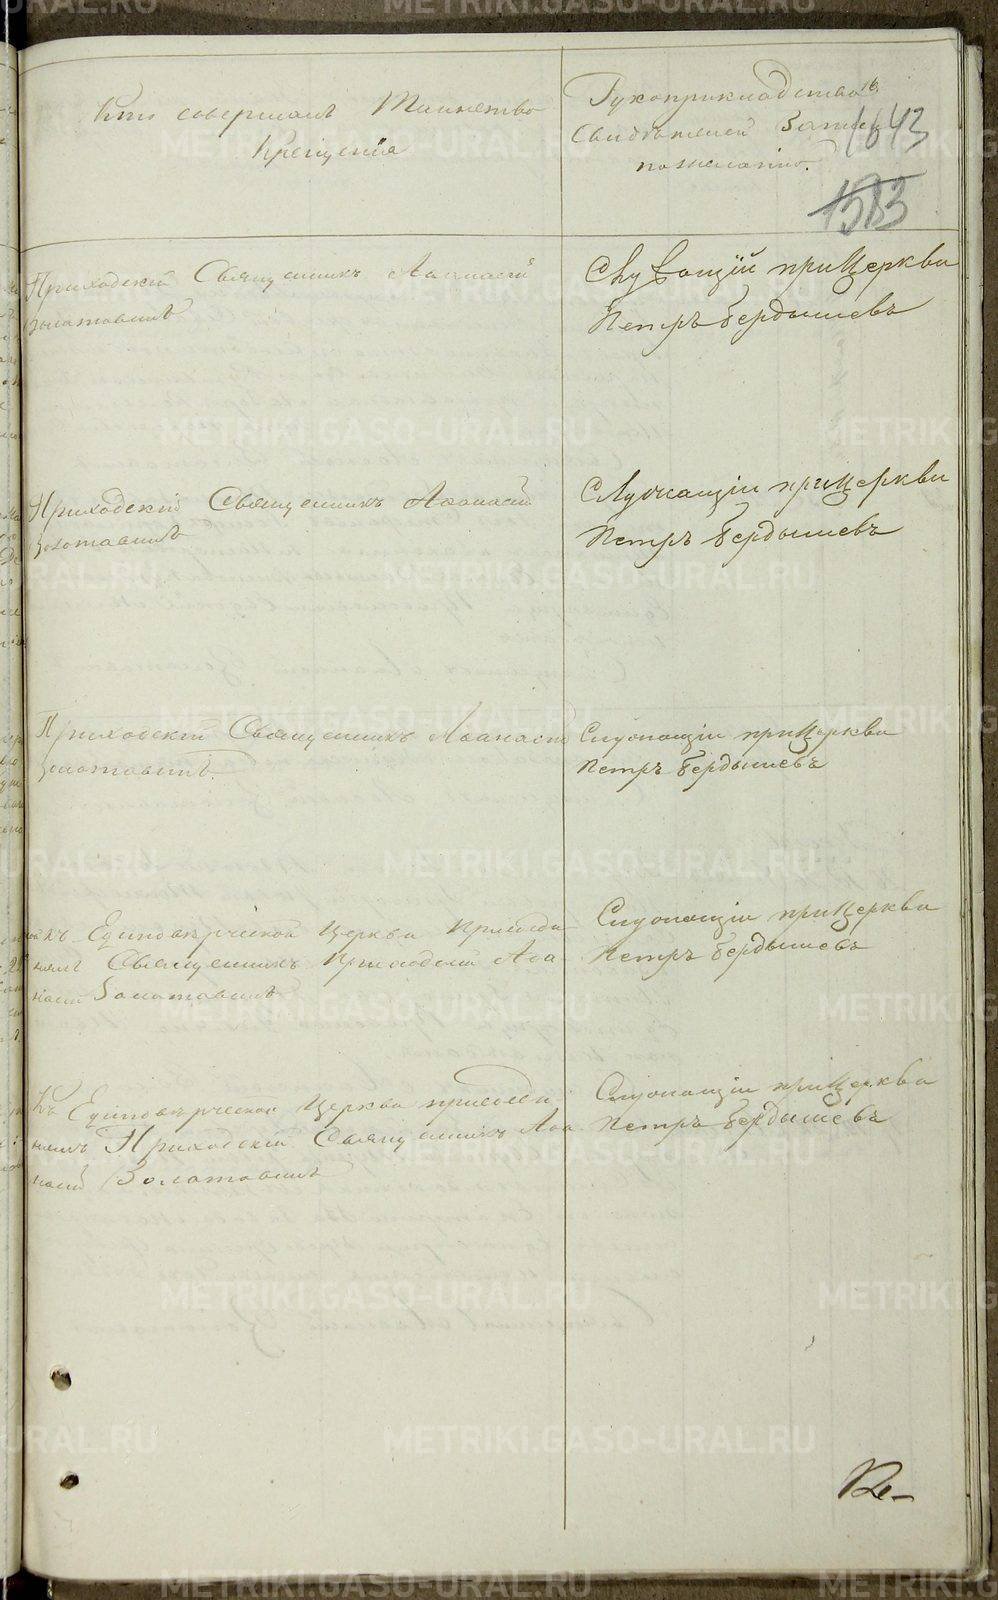 Кто совершалъ Таинство
Крещенія
Рукоприкладство
Свидѣтелей Записи
по желанію.
16
1643
1583
Приходскій Священникъ Аѳанасій
Золотавинъ
Служащій при Церкви
Петръ Бердышевъ
Приходскій Священникъ Аѳанасій
Золотавинъ
Служащіи при Церкви
Петръ Бердышевъ
Приходскій Священникъ Аѳанасій
Золотавинъ.
Служащіи при Церкви
Петръ Бердышевъ
къ Единовѣрческой Церкви Присоеди
нилъ Священникъ Приходскій Аѳа
насій Золотавинъ
Служащіи при Церкви
Петръ Бердышевъ
Къ Единовѣрческой Церкви присоеди
нилъ Приходскій Священникъ Аѳа
насій Золотавинъ
Служащіи при Церкви
Петръ Бердышевъ
METRIKI.GASO-URAL.RU